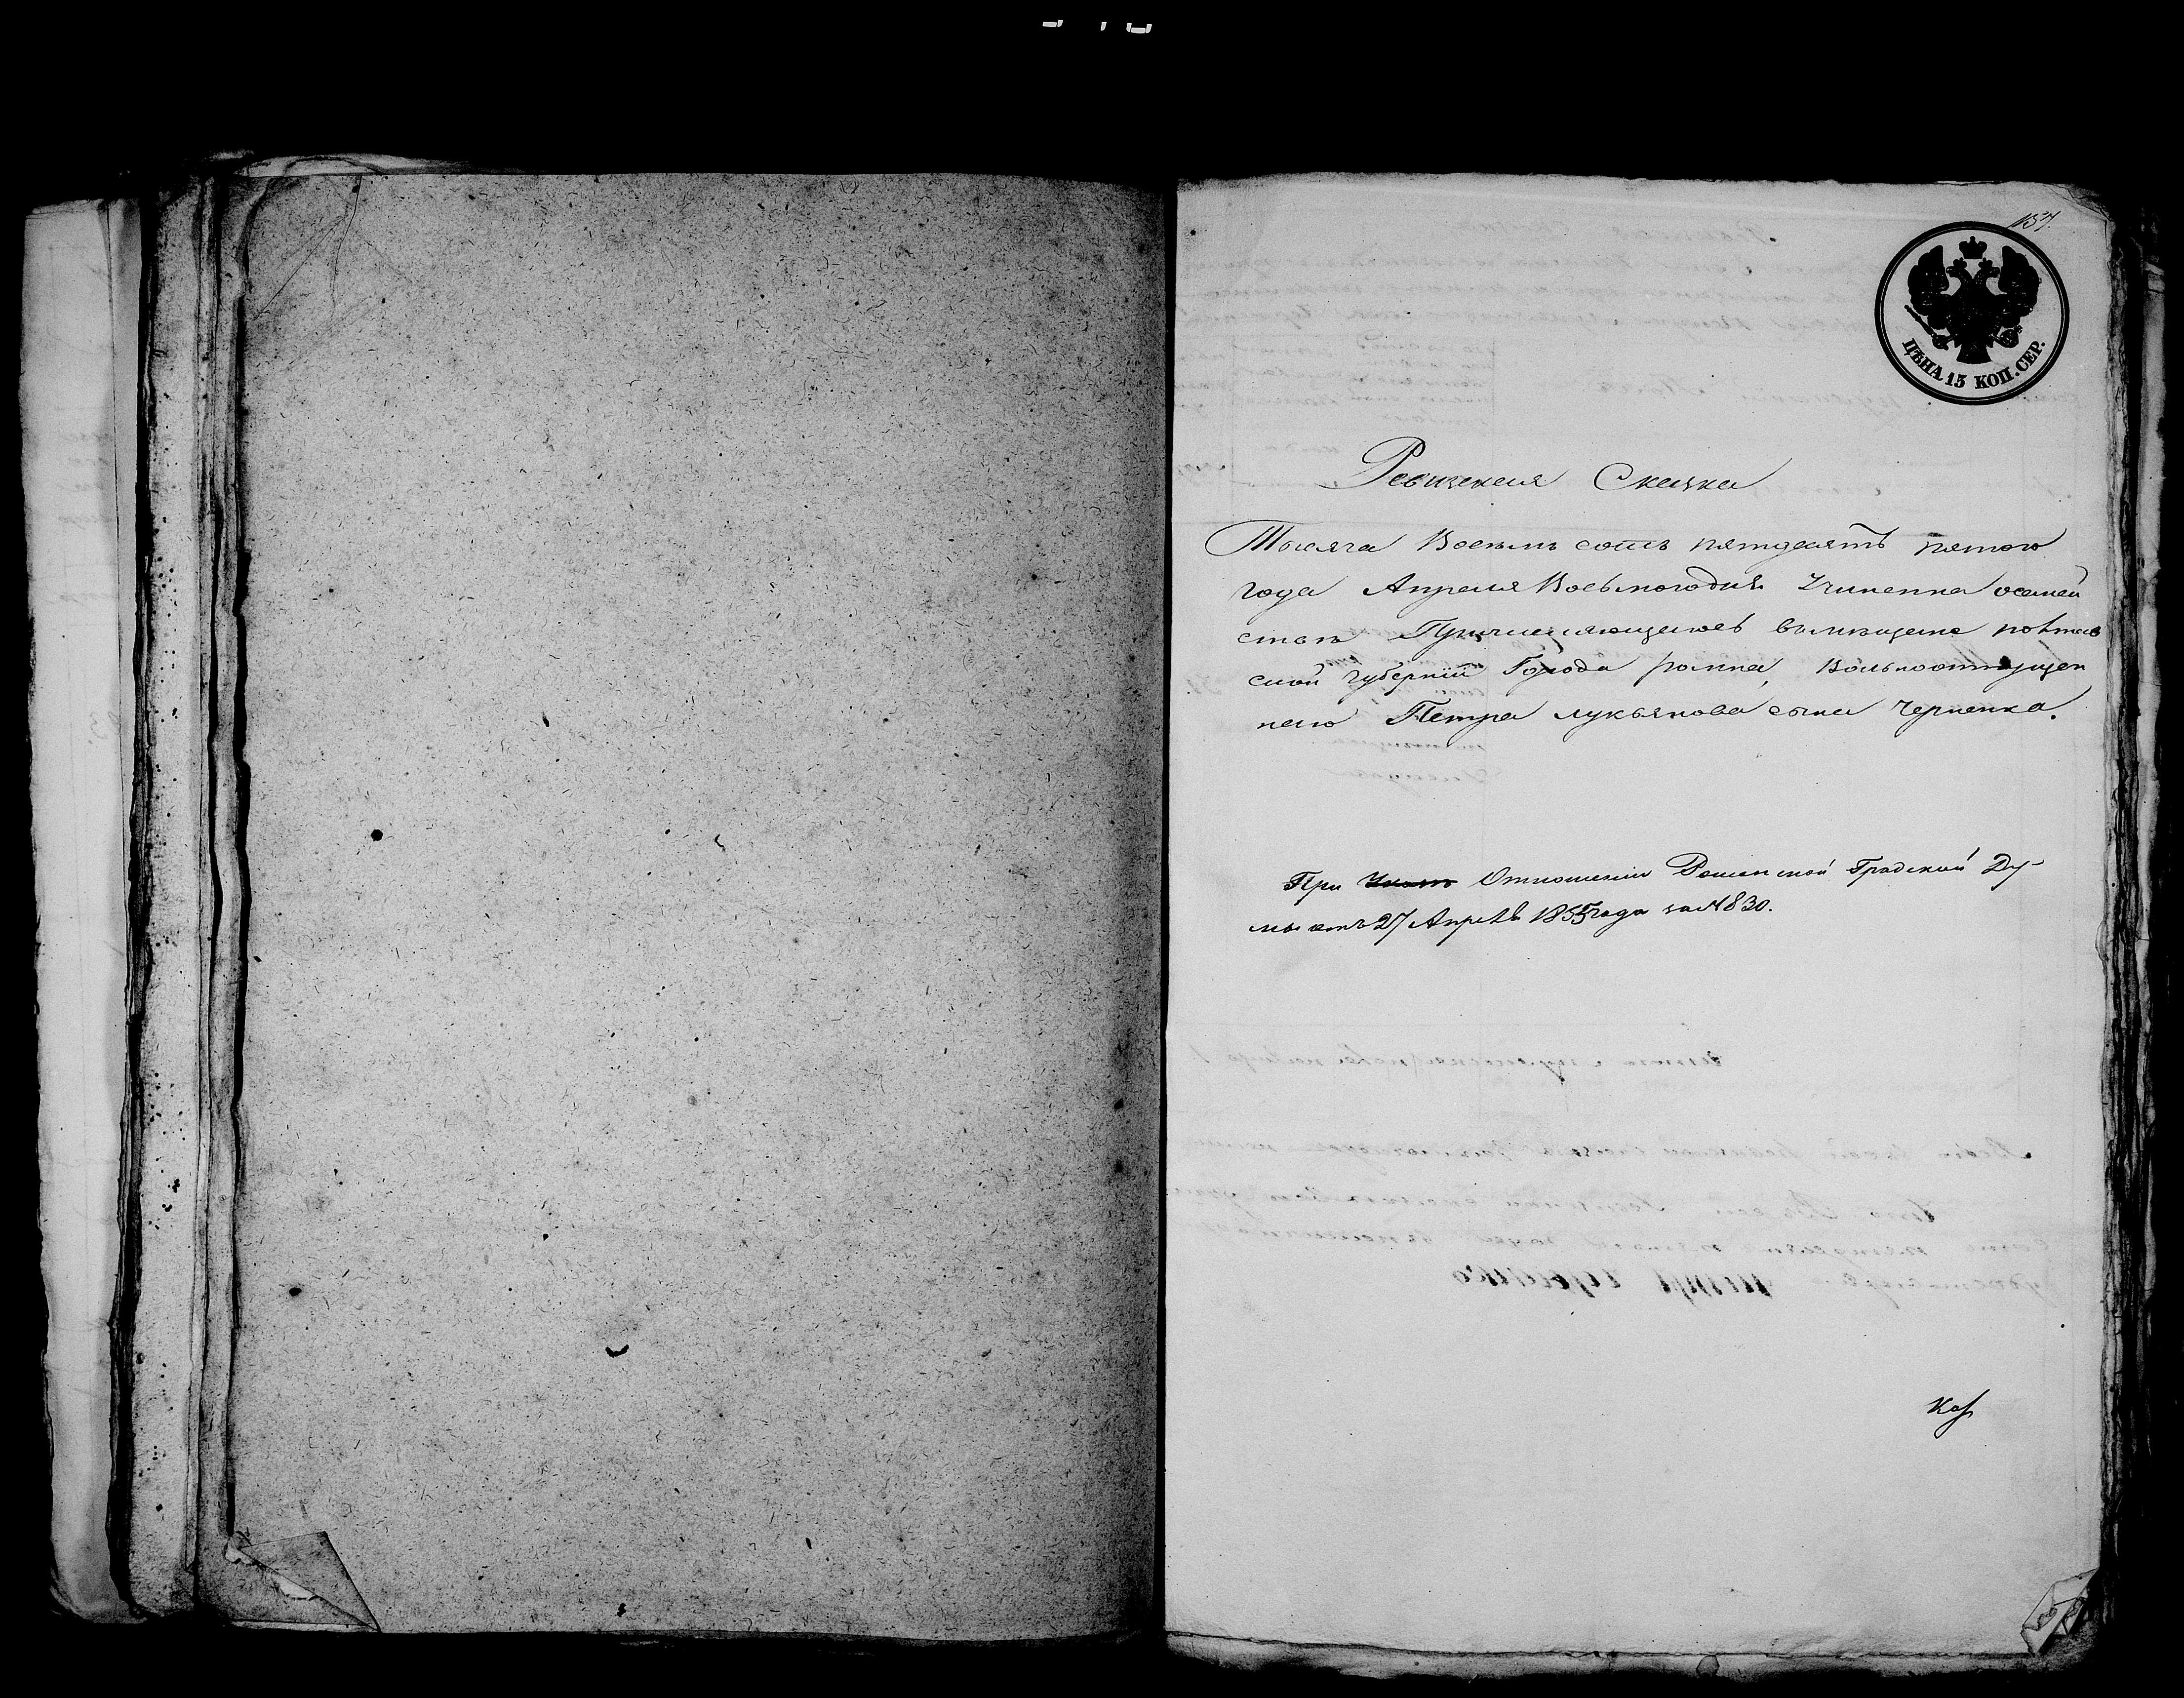 157.
ЦѢНА 15 КОП. СЕР.
Ревизская Сказка
Тысяча Восемь сотъ пятдесятъ пятого
года Апреля Восьмогодня Учиненна осемей
ствѣ Причисляющемся вмѣщане полтав
ской губернiи Города ромна, Вольноотпущен
наго Петра лукьянова сына Черненка.
При Отношенiи Роменской Градской Ду-
мы отъ 27 Апрѣля 1855 года за № 830.